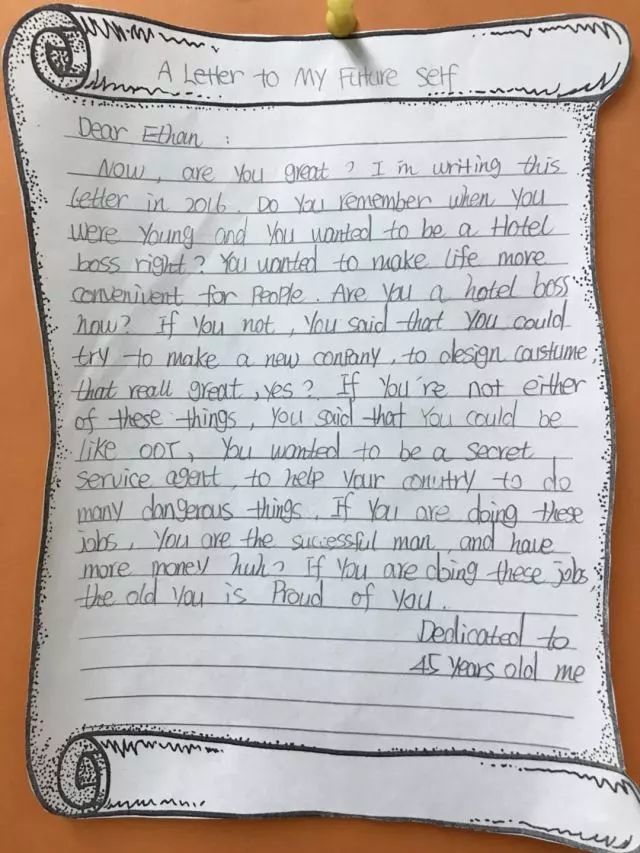 A Letter to My Future Self
Dear Ethan :
Now, are you great ? I'm writing this
letter in 2016. Do you remember when you
were young and you wanted to be a Hotel
boss right? You wanted to make life more
convenivent for people. Are you a hotel boss
now? If you not, you said that you could
try to make a new conpany, to design coustume,
that reall great, yes? If you're not either
of these things, you said that you could be
like 007, You wanted to be a secret
service agent, to help your conutry to do
many dangerous things. If you are doing these
jobs, you are the successful man, and have
more money huh? If you are doing these jobs,
the old you is proud of you.
Dedicated to
45 years old me